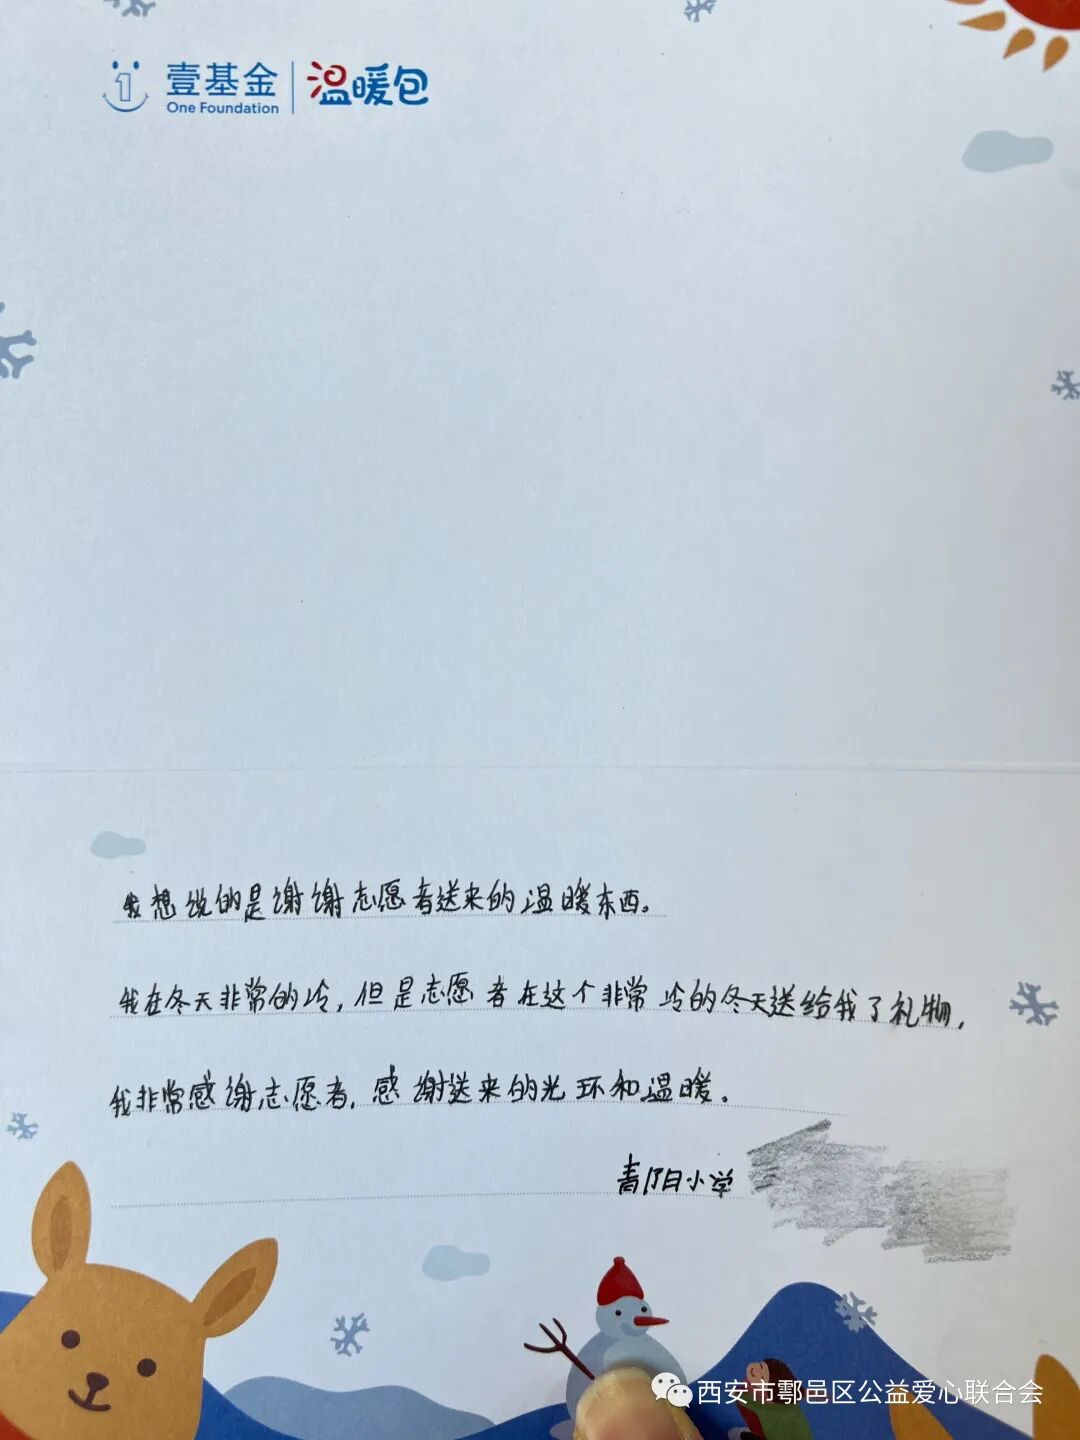 壹基金
One Foundation
温暖包
我想说的是谢谢志愿者送来的温暖东西。
我在冬天非常的冷,但是志愿者在这个非常冷的冬天送给我了礼物,
我非常感谢志愿者,感谢送来的光环和温暖。
青阳小学
西安市鄠邑区公益爱心联合会